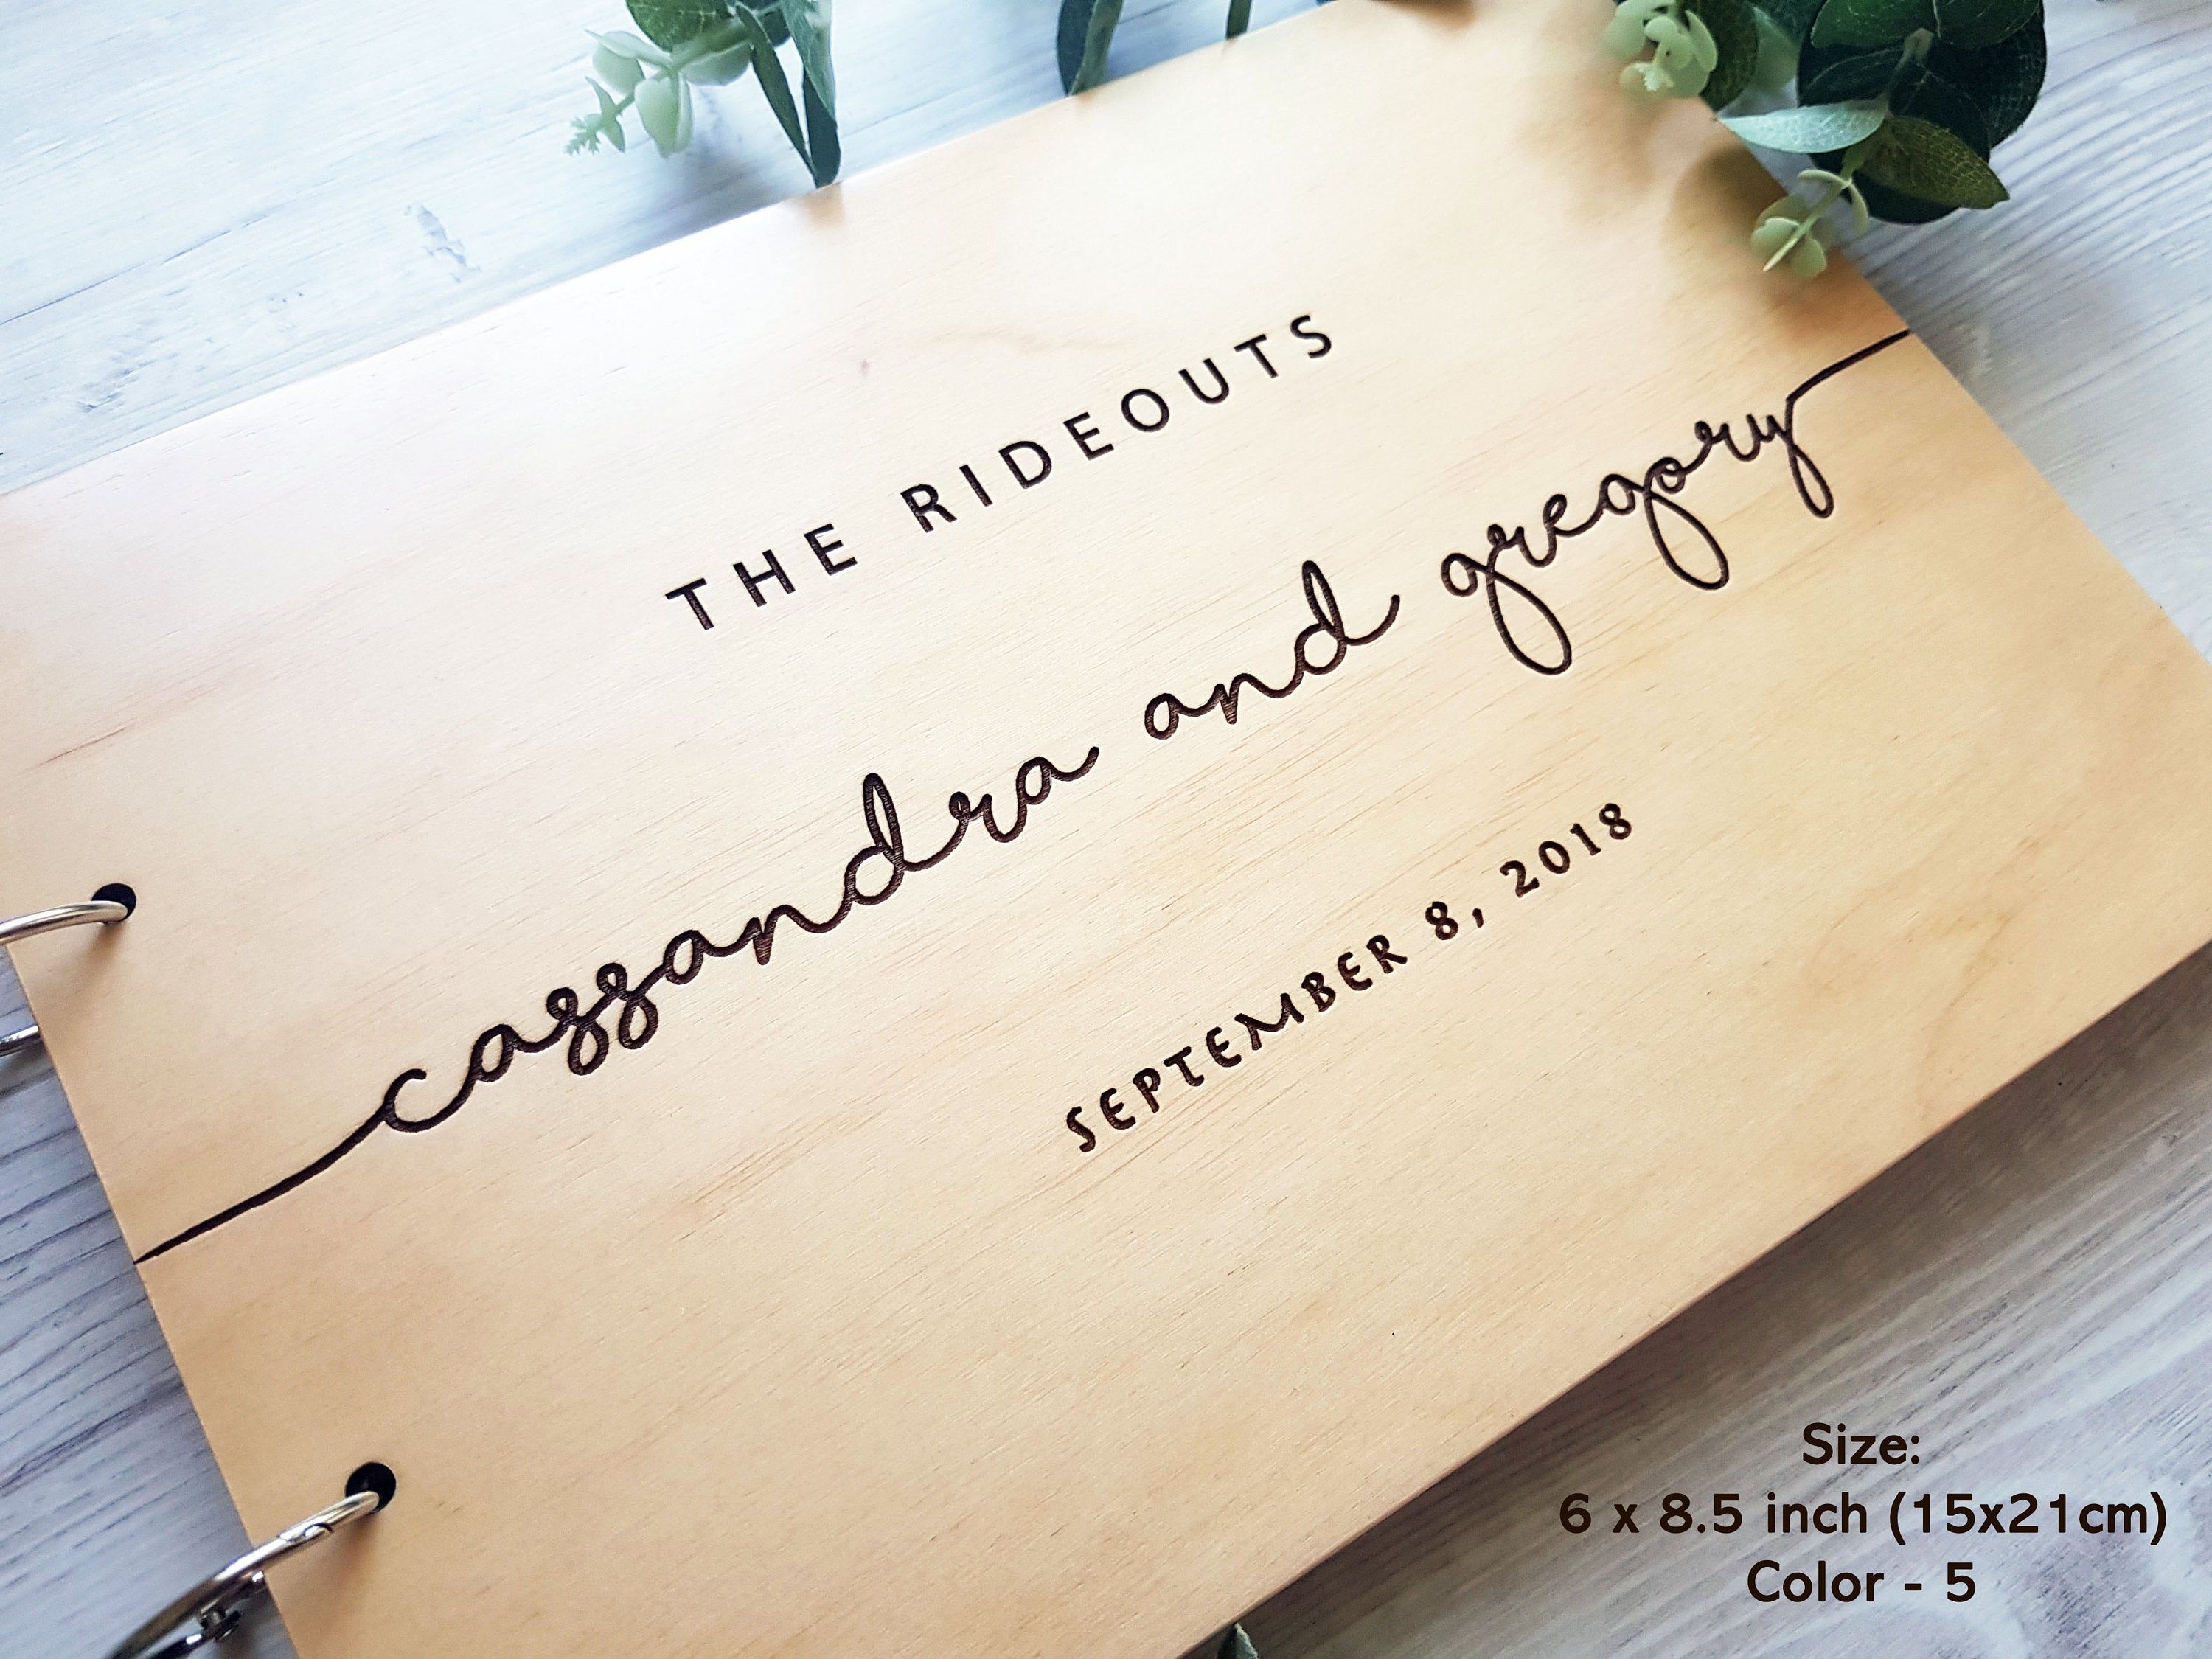 THE RIDEOUTS
cassandra and gregory
SEPTEMBER 8, 2018
Size:
6 x 8.5 inch (15x21cm)
Color - 5